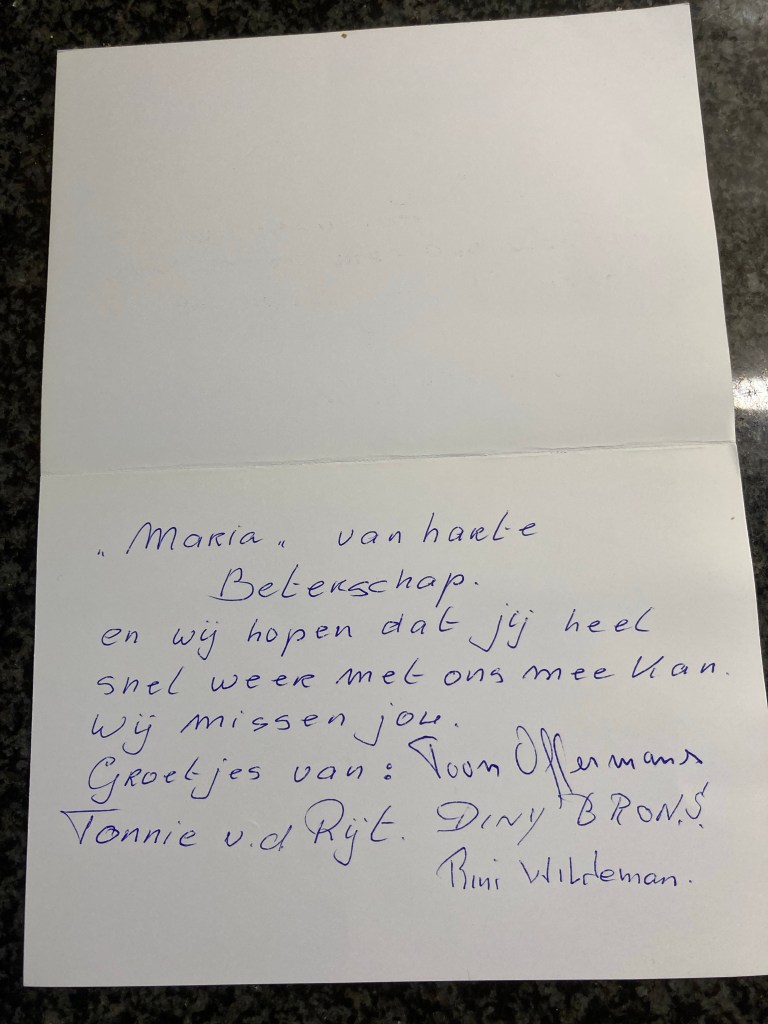 „Maria„ van harte
Beterschap.
en wij hopen dat jij heel
snel weer met ons mee kan.
Wij missen jou.
Groetjes van: Toon Offermans
Tonnie v.d Rijt. DINY BRONS.
Rini Wildeman.